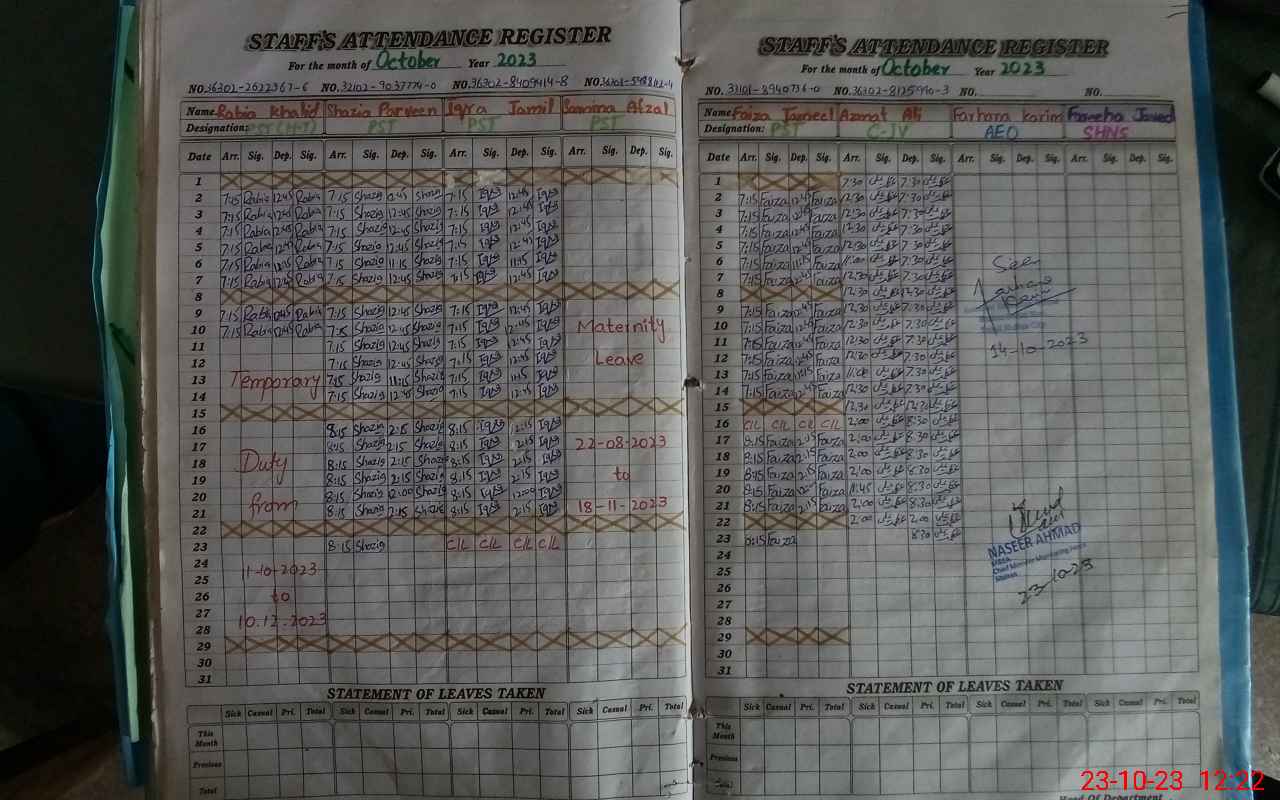 STAFF'S ATTENDANCE REGISTER
For the month of October Year 2023
NO. 36302-2622367-6 NO. 32102-9037774-0 NO. 36302-8409414-8 NO.
Name Rabia Khalid Shazia Parveen Iqra Jamil Samina Afzal
Designation: PST (H-T) PST PST PST
Date Arr. Sig. Dep. Sig. Arr. Sig. Dep. Sig. Arr. Sig. Dep. Sig. Arr. Sig. Dep. Sig.
1
2 7:15 Rabia 12:45 Rabia 7:15 Shazia 12:45 Shazia 7:15 Iqra 12:45 Iqra
3 7:15 Rabia 12:45 Rabia 7:15 Shazia 12:45 Shazia 7:15 Iqra 12:45 Iqra
4 7:15 Rabia 12:45 Rabia 7:15 Shazia 12:45 Shazia 7:15 Iqra 12:45 Iqra
5 7:15 Rabia 12:45 Rabia 7:15 Shazia 12:45 Shazia 7:15 Iqra 12:45 Iqra
6 7:15 Rabia 11:15 Rabia 7:15 Shazia 11:15 Shazia 7:15 Iqra 11:15 Iqra
7 7:15 Rabia 12:45 Rabia 7:15 Shazia 12:45 Shazia 7:15 Iqra 12:45 Iqra
8
9 7:15 Rabia 12:45 Rabia 7:15 Shazia 12:45 Shazia 7:15 Iqra 12:45 Iqra
10 7:15 Rabia 12:45 Rabia 7:15 Shazia 12:45 Shazia 7:15 Iqra 12:45 Iqra Maternity
11 7:15 Shazia 12:45 Shazia 7:15 Iqra 12:45 Iqra
12 7:15 Shazia 12:45 Shazia 7:15 Iqra 12:45 Iqra Leave
13 Temporary 7:15 Shazia 11:15 Shazia 7:15 Iqra 11:15 Iqra
14 7:15 Shazia 12:45 Shazia 7:15 Iqra 12:45 Iqra
15
16 8:15 Shazia 2:15 Shazia 8:15 Iqra 2:15 Iqra
17 8:15 Shazia 2:15 Shazia 8:15 Iqra 2:15 Iqra 22-08-2023
18 Duty 8:15 Shazia 2:15 Shazia 8:15 Iqra 2:15 Iqra
19 8:15 Shazia 2:15 Shazia 8:15 Iqra 2:15 Iqra to
20 from 8:15 Shazia 12:00 Shazia 8:15 Iqra 12:00 Iqra
21 8:15 Shazia 2:15 Shazia 8:15 Iqra 2:15 Iqra 18-11-2023
22
23 8:15 Shazia C/L C/L C/L C/L
24 11-10-2023
25
26 to
27
28 10.12.2023
29
30
31
STATEMENT OF LEAVES TAKEN
Sick Casual Pri. Total Sick Casual Pri. Total Sick Casual Pri. Total Sick Casual Pri. Total
This Month
Previous
Total
STAFF'S ATTENDANCE REGISTER
For the month of October Year 2023
NO. NO. 36302-8125990-3 NO. NO.
Name Faiza Jameel Azmat Ali Farhana Karim Fareeha Javed
Designation: PST C-JV AEO SHNS
Date Arr. Sig. Dep. Sig. Arr. Sig. Dep. Sig. Arr. Sig. Dep. Sig. Arr. Sig. Dep. Sig.
1 7:30 7:30
2 7:15 Faiza 12:45 Faiza 12:30 7:30
3 7:15 Faiza 12:45 Faiza 12:30 7:30
4 7:15 Faiza 12:45 Faiza 12:30 7:30
5 7:15 Faiza 12:45 Faiza 12:30 7:30
6 7:15 Faiza 11:15 Faiza 11:00 7:30 Seen
7 7:15 Faiza 12:45 Faiza 12:30 7:30
8 12:30 12:30
9 7:15 Faiza 12:45 Faiza 12:30 7:30
10 7:15 Faiza 12:45 Faiza 12:30 7:30
11 7:15 Faiza 12:45 Faiza 12:30 7:30 14-10-2023
12 7:15 Faiza 12:45 Faiza 12:30 7:30
13 7:15 Faiza 11:15 Faiza 11:00 7:30
14 7:15 Faiza 12:45 Faiza 12:30 7:30
15 12:30 12:30
16 C/L C/L C/L C/L 2:00 8:30
17 8:15 Faiza 2:15 Faiza 2:00 8:30
18 8:15 Faiza 2:15 Faiza 2:00 8:30
19 8:15 Faiza 2:15 Faiza 2:00 8:30
20 8:15 Faiza Faiza 11:45 8:30
21 8:15 Faiza 2:15 Faiza 2:00 8:30
22 2:00 2:00
23 8:15 Faiza 8:30
NASEER AHMAD
MEA
Chief Minister Monitoring Force
Multan
23-10-23
24
25
26
27
28
29
30
31
STATEMENT OF LEAVES TAKEN
Sick Casual Pri. Total Sick Casual Pri. Total Sick Casual Pri. Total Sick Casual Pri. Total
This Month
Previous
Total
Head Of Department
23-10-23 12:22